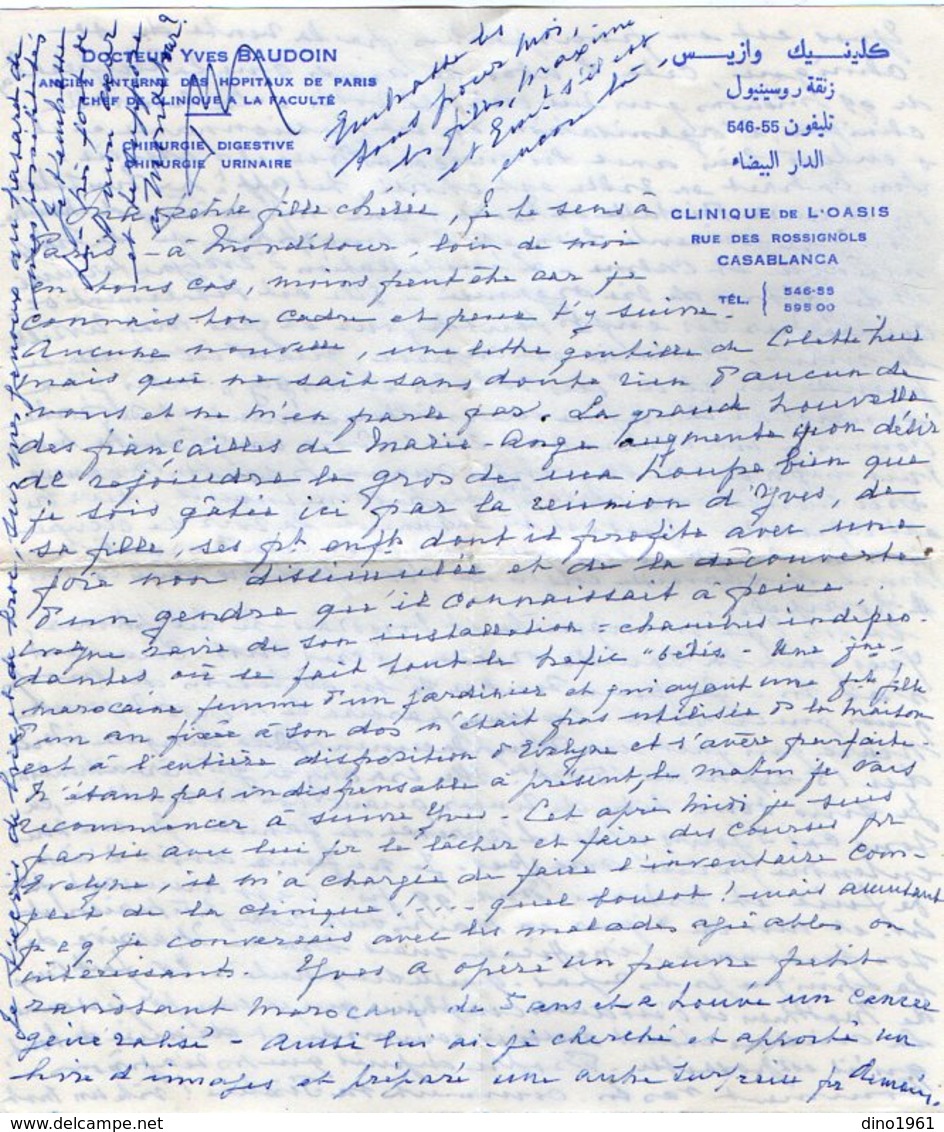 DOCTEUR YVES BAUDOIN
ANCIEN INTERNE DES HOPITAUX DE PARIS
CHEF DE CLINIQUE A LA FACULTÉ
CHIRURGIE DIGESTIVE
CHIRURGIE URINAIRE
كلينيك وازيس
زنقة روسينيول
تليفون 55-546
الدار البيضاء
CLINIQUE DE L'OASIS
RUE DES ROSSIGNOLS
CASABLANCA
TÉL. { 546-55
595 00
tous pour moi,
les filles, Maxime
et s'il est
encore là
Ma petite fille chérie, je te sens à
Paris - à loin de moi
en tous cas, moins peut être car je
connais ton cadre et peux t'y suivre.
Aucune nouvelle, une lettre gentille de Colette hier
mais qui ne sait sans doute rien d'aucun de
vous et ne m'en parle pas. La grande nouvelle
des fiançailles de Marie-Ange augmente mon désir
de rejoindre le gros de ma troupe bien que
je sois gâtée ici par la réunion d'Yves, de
sa fille, ses pts enfts dont il profite avec une
joie non dissimulée et de la découverte
d'un gendre qu'il connaissait à peine
Evelyne ravie de son installation - chambres indépen-
dantes où se fait tout le trafic "bébés" - Une jne
marocaine femme d'un jardinier et qui ayant une pte fille
d'un an fixée à son dos n'était pas utilisée à la maison
est à l'entière disposition d'Evelyne et s'avère parfaite.
N'étant pas indispensable à présent, le matin je vais
recommencer à suivre Yves - Cet après midi je suis
partie avec lui pr le lâcher et faire des courses pr
Evelyne, il m'a chargée de faire l'inventaire com-
plet de la clinique !.... quel boulot ! mais amusant
pcq je conversais avec les malades agréables ou
intéressants. Yves a opéré un pauvre petit
ravissant marocain de 5 ans et a trouvé un cancer
généralisé - Aussi lui ai-je cherché et apporté un
livre d'images et préparé une autre surprise pr demain.